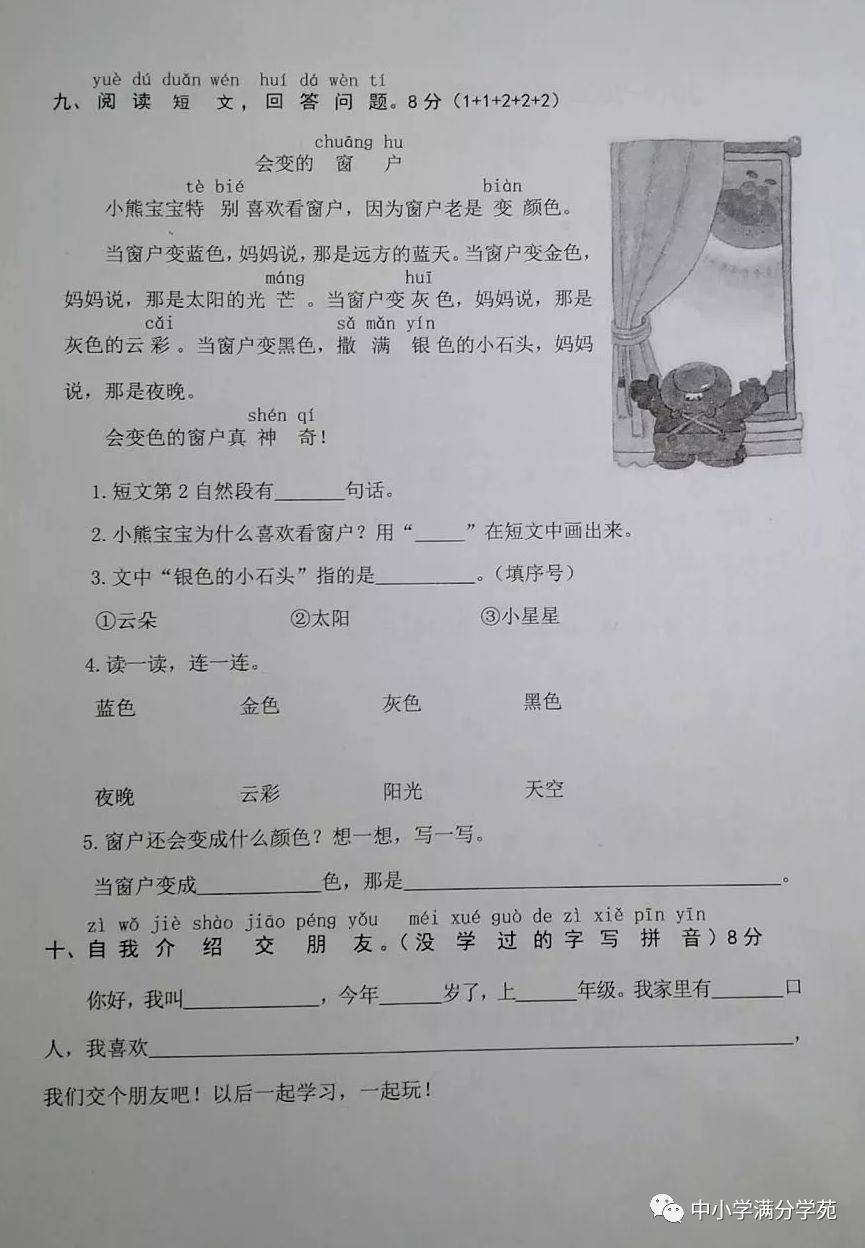 yuè dú duǎn wén huí dá wèn tí
九、阅读短文，回答问题。8分（1+1+2+2+2）
chuāng hu
会变的窗户
tè bié biàn
小熊宝宝特别喜欢看窗户，因为窗户老是变颜色。
当窗户变蓝色，妈妈说，那是远方的蓝天。当窗户变金色，
máng huī
妈妈说，那是太阳的光芒。当窗户变灰色，妈妈说，那是
cǎi sǎ mǎn yín
灰色的云彩。当窗户变黑色，撒满银色的小石头，妈妈
说，那是夜晚。
shén qí
会变色的窗户真神奇！
1.短文第2自然段有______句话。
2.小熊宝宝为什么喜欢看窗户？用“____”在短文中画出来。
3.文中“银色的小石头”指的是________。（填序号）
①云朵 ②太阳 ③小星星
4.读一读，连一连。
蓝色 金色 灰色 黑色
夜晚 云彩 阳光 天空
5.窗户还会变成什么颜色？想一想，写一写。
当窗户变成__________色，那是______________________________。
zì wǒ jiè shào jiāo péng yǒu méi xué guò de zì xiě pīn yīn
十、自我介绍交朋友。（没学过的字写拼音）8分
你好，我叫___________，今年_____岁了，上_____年级。我家里有______口
人，我喜欢____________________________________________________，
我们交个朋友吧！以后一起学习，一起玩！
中小学满分学苑